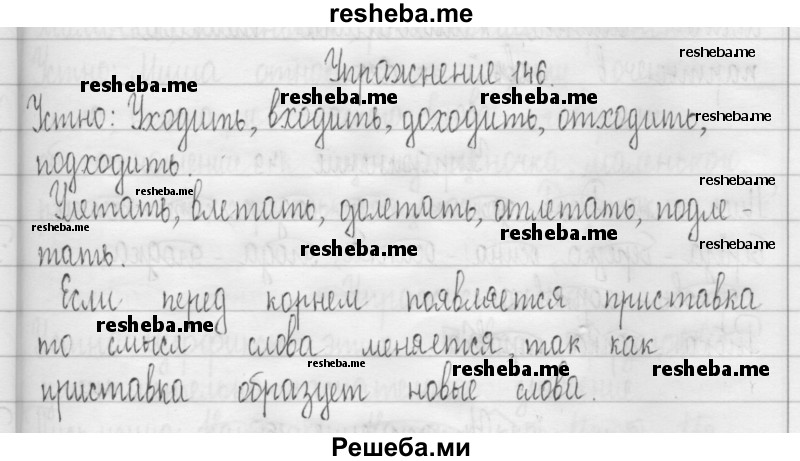 resheba.me
Упражнение 146.
Устно: Уходить, входить, доходить, отходить,
подходить.
Улетать, влетать, долетать, отлетать, подле-
тать.
Если перед корнем появляется приставка
то смысл слова меняется, так как
приставка образует новые слова.
resheba.me
resheba.me
resheba.me
resheba.me
resheba.me
resheba.me
resheba.me
resheba.me
resheba.me
resheba.me
resheba.me
resheba.me
resheba.me
Решеба.ми